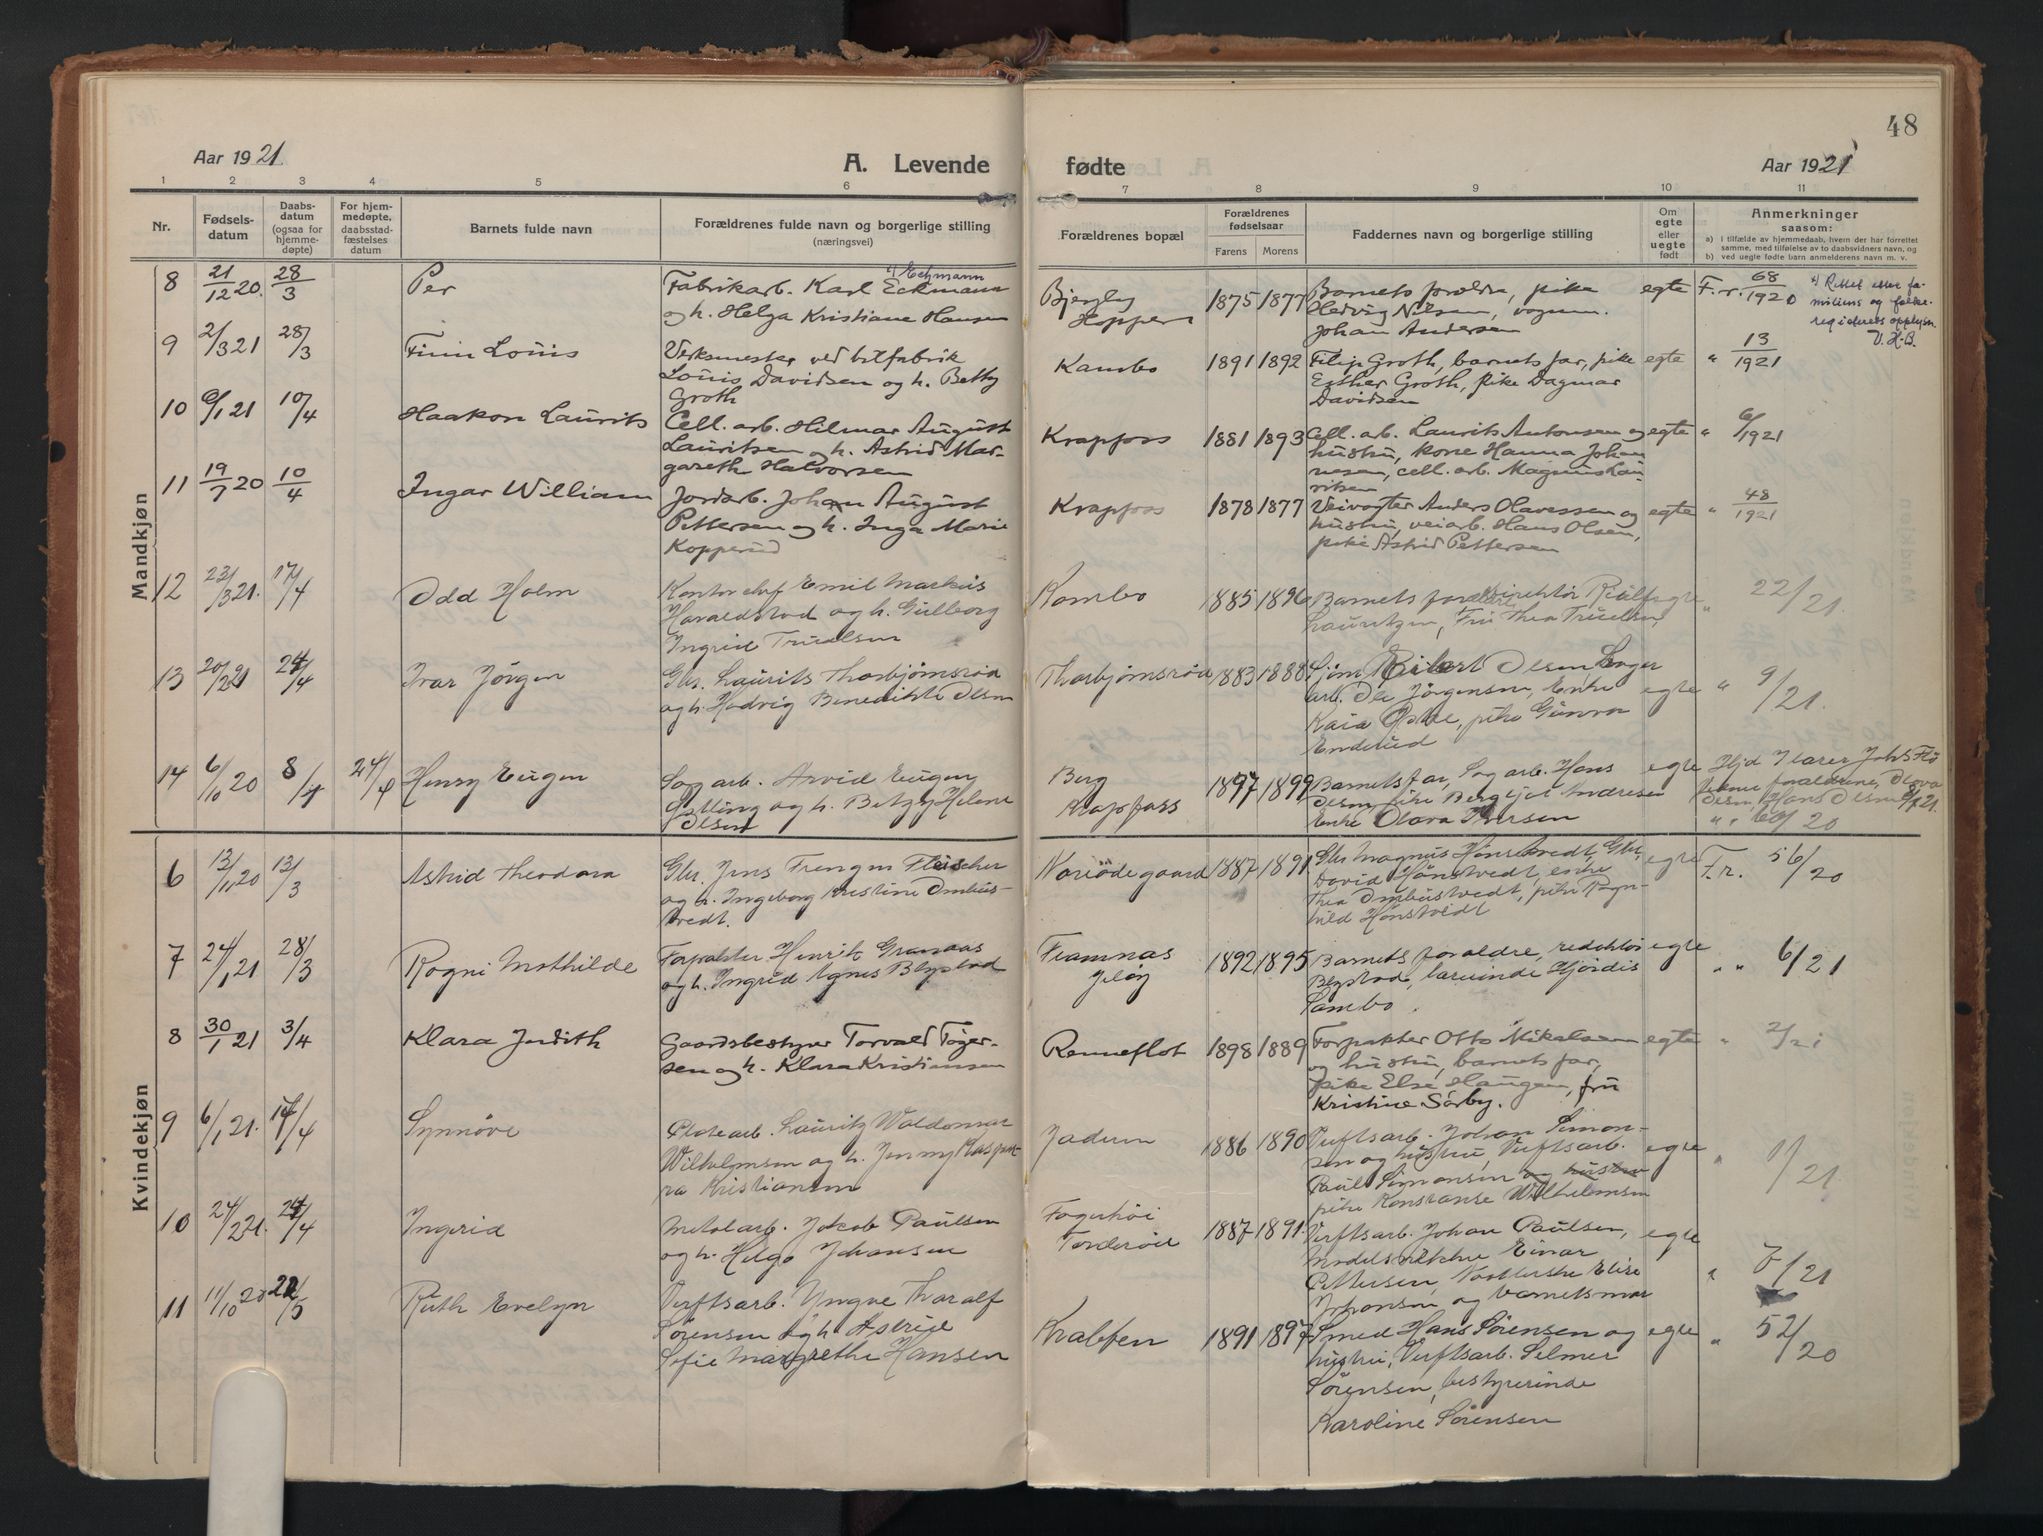 48
Aar 1921.
A. Levende
fødte
Aar 1921
1 2 3 4 5 6 7 8 9 10 11
Nr.
Fødsels-
datum
Daabs-
datum
(ogsaa for
hjemme-
døpte)
For hjem-
medøpte,
daabsstad-
fæstelses
datum
Barnets fulde navn
Forældrenes fulde navn og borgerlige stilling
(næringsvei)
Forældrenes bopæl
Forældrenes
fødselsaar
Farens Morens
Faddernes navn og borgerlige stilling
Om
egte
eller
uegte
født
Anmerkninger
saasom:
a) i tilfælde av hjemmedaab, hvem der har forrettet
samme, med tilføielse av to daabsvidners navn, og
b) ved uegte fødte barn anmelderens navn m. v.
Mandkjøn
8 21/12 20. 28/3 Per
Fabrikarb. Karl Eckmann
x) Eckmann
og h. Helga Kristiane Hansen
Bjergly
1875 1877
Barnets forældre, pike
Hedvig Nilsen, vognm.
Johan Andersen
egte F. r. 68/1920
x) Rettet efter fa-
miliens og folke-
registerets opplysn.
V. H-B.
9 2/3 21 28/3 Finn Louis
Verksmester ved bilfabrik
Louis Davidsen og h. Betty
Groth
Kambo
1891 1892
Filip Groth, barnets far, pike
Esther Groth, pike Dagmar
Davidsen
egte " 13/1921
10 6/1 21 10/4 Haakon Laurits
Cell. arb. Hilmar August
Lauritsen og h. Astrid Mar-
gareth Halvorsen
Krapfoss
1881 1893
Cell. arb. Laurits Antonsen og
hustru, kone Hanna Johan
nesen, cell. arb. Magnus Lau-
ritsen
egte " 6/1921
11 19/7 20 10/4 Ingar William
Jordarb. Johan August
Pettersen og h. Inga Marie
Kopperud
Krapfoss
1878 1877
Veivogter Anders Olavessen og
hustru, veiarb. Hans Olsen,
pike Astrid Pettersen
egte " 48/1921
12 23/3 21. 17/4 Odd Holm
Kontorchef Emil Markus
Haraldstad og h. Gulborg
Ingrid Truelsen
Kambo
1885 1896
Barnets forældre, direktör
Lauritzen, Fru Thea Truelsen
egte " 22/21.
13 20/2 21 24/4 Ivar Jörgen
Gbr. Laurits Thorbjörnsröd
og h. Hedvig Benedikte Olsen
Thorbjörnsröd
1883 1888
Sjöm. Eilert Olsen, Lager
arb. Ole Jörgensen, Enke
Kaia Östbe, pike Gunvor
Enderud
egte " 9/21.
14 6/10 20 8/4 24/4 Henry Eugen
Sagarb. Arvid Eugen
og h. Betzy Helene
Olsen
Berg
Krapfoss
1897 1899
Barnets far, Sagarb. Hans
Olsen, pike Bergljot Andresen
Enke Olava Iversen
egte
Hjd.
Olsen, Hans Olsen
60/20
Kvindekjøn
6 13/11 20 13/3 Astrid Theodora
Gbr. Jens Frengen Fleischer
og h. Ingeborg Kristine Ombus-
tvedt.
Noreödegaard
1887 1891.
Gbr. Magnus Hönstvedt, Gbr.
David Hönstvedt, enke
Thea Ombustvedt, pike Ragn-
hild Hönstvedt
egte F. r. 56/20
7 24/1 21 28/3 Ragni Mathilde
Forpakter Henrik Granaas
og h. Ingrid Agnes Blystad
Framnæs
Jelöy
1892 1895
Barnets forældre, redaktör
Blystad, lærerinde Hjördis
Sambo.
egte " " 6/21
8 30/1 21 3/4 Klara Judith
Gaardsbestyrer Torvald Töger-
sen og h. Klara Kristiansen
Renneflot
1898 1889
Forpakter Otto Mikalsen
og hustru, barnets far,
pike Else Haugen, fru
Kristine Sörby.
egte " 2/21
9 6/1 21. 17/4 Synnöve
Platearb. Lauritz Waldemar
Wilhelmsen og h. Jenny Kaspa-
ra Kristiansen
Jadum
1886 1890
Verftsarb. Johan Simon-
sen og hustru, Verftsarb.
Paul Simonsen og hustru
pike Konstanse Wilhelmsen
egte " 11/21
10 24/2 21. 24/4 Ingerid
Metalarb. Jakob Paulsen
og h. Helga Johansen
Fagerhöi
Torderöd
1887 1891.
Verftsarb. Johan Paulsen,
Modelsnekker Einar
Pettersen, Vaskerske Elise
Johansen og barnets mor
egte " 7/21
11 11/10 20 22/5 Ruth Evelyn
Verftsarb. Yngve Tharalf
Sörensen og h. Astrid
Sofie Margrethe Hansen
Krabfen
1891 1897
Smed Hans Sörensen og
hustru, Verftsarb. Selmer
Sörensen, bestyrerinde
Karoline Sörensen
egte " 52/20